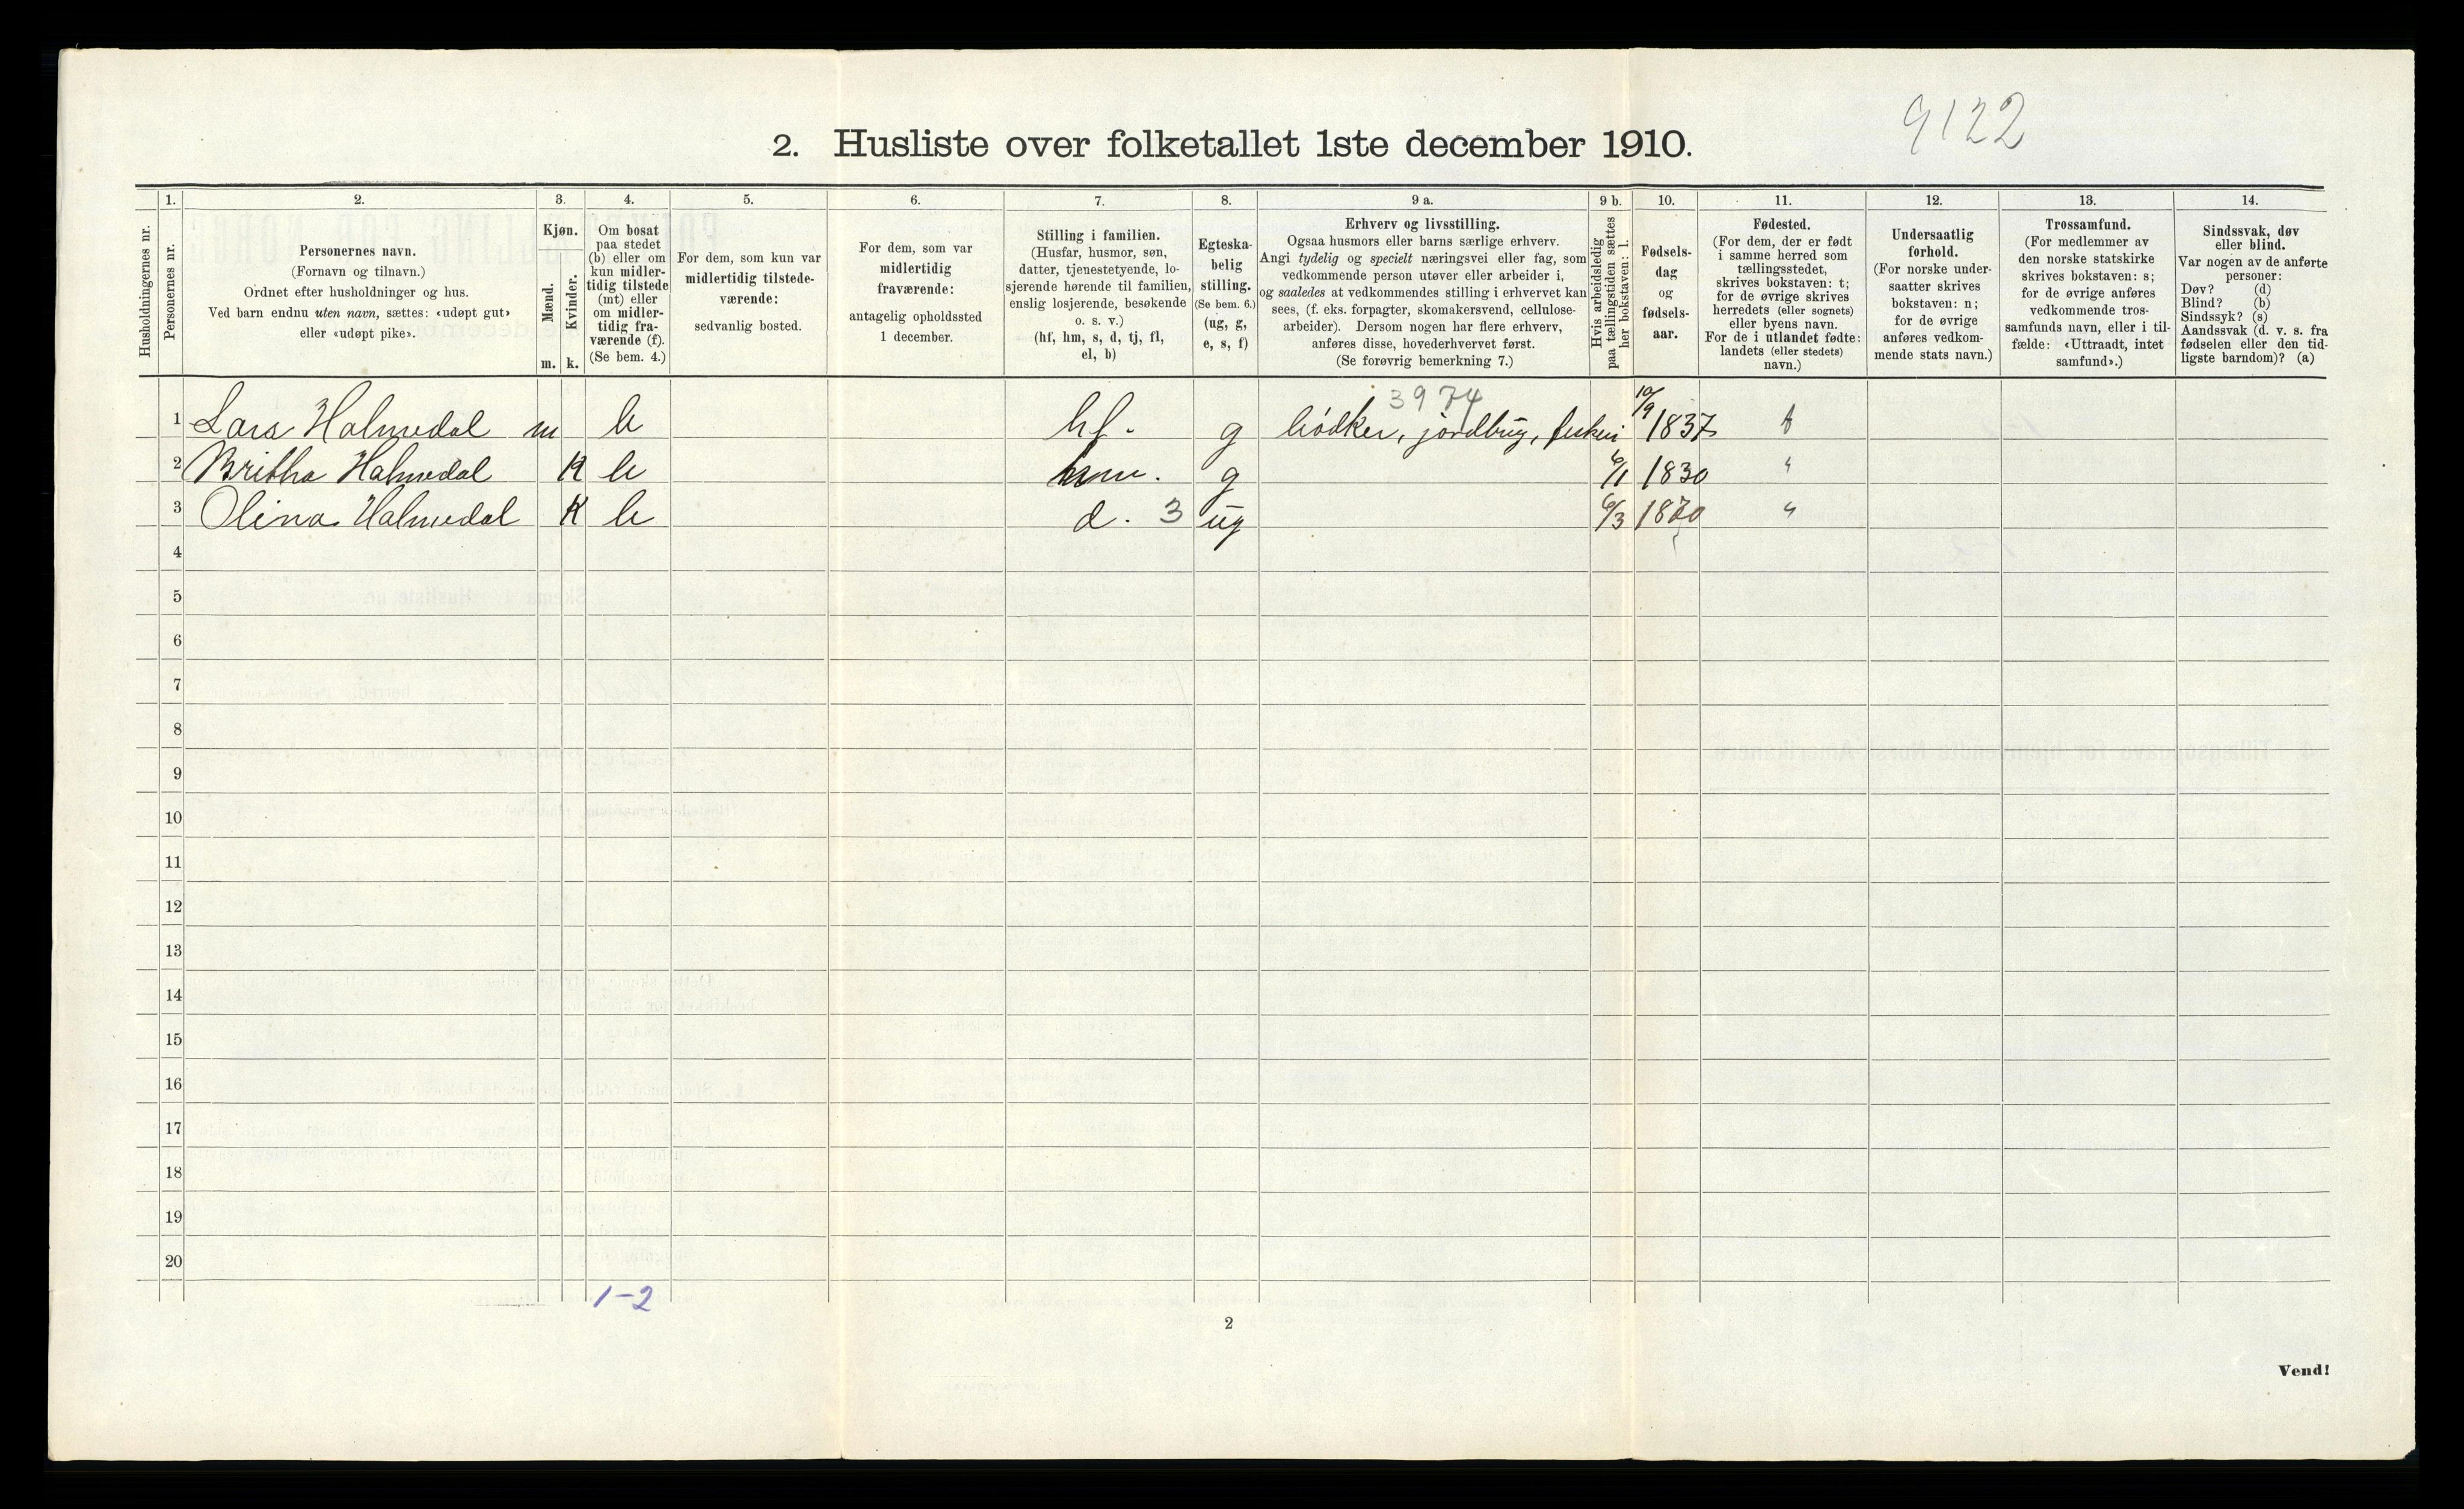 9122
2. Husliste over folketallet 1ste december 1910.
1. 2. 3. 4. 5. 6. 7. 8. 9 a. 9 b. 10. 11. 12. 13. 14.
Husholdningernes nr.
Personernes nr.
Personernes navn.
(Fornavn og tilnavn.)
Ordnet efter husholdninger og hus.
Ved barn endnu uten navn, sættes: «udøpt gut»
eller «udøpt pike».
Kjøn.
Mænd.
Kvinder.
m. k.
Om bosat
paa stedet
(b) eller om
kun midler-
tidig tilstede
(mt) eller
om midler-
tidig fra-
værende (f).
(Se bem. 4.)
For dem, som kun var
midlertidig tilstede-
værende:
sedvanlig bosted.
For dem, som var
midlertidig
fraværende:
antagelig opholdssted
1 december.
Stilling i familien.
(Husfar, husmor, søn,
datter, tjenestetyende, lo-
sjerende hørende til familien,
enslig losjerende, besøkende
o. s. v.)
(hf, hm, s, d, tj, fl,
el, b)
Egteska-
belig
stilling.
(Se bem. 6.)
(ug, g,
e, s, f)
Erhverv og livsstilling.
Ogsaa husmors eller barns særlige erhverv.
Angi tydelig og specielt næringsvei eller fag, som
vedkommende person utøver eller arbeider i,
og saaledes at vedkommendes stilling i erhvervet kan
sees, (f. eks. forpagter, skomakersvend, cellulose-
arbeider). Dersom nogen har flere erhverv,
anføres disse, hovederhvervet først.
(Se forøvrig bemerkning 7.)
Hvis arbeidsledig
paa tællingstiden sættes
her bokstaven: l.
Fødsels-
dag
og
fødsels-
aar.
Fødested.
(For dem, der er født
i samme herred som
tællingsstedet,
skrives bokstaven: t;
for de øvrige skrives
herredets (eller sognets)
eller byens navn.
For de i utlandet fødte:
landets (eller stedets)
navn.)
Undersaatlig
forhold.
(For norske under-
saatter skrives
bokstaven: n;
for de øvrige
anføres vedkom-
mende stats navn.)
Trossamfund.
(For medlemmer av
den norske statskirke
skrives bokstaven: s;
for de øvrige anføres
vedkommende tros-
samfunds navn, eller i til-
fælde: «Uttraadt, intet
samfund».)
Sindssvak, døv
eller blind.
Var nogen av de anførte
personer:
Døv? (d)
Blind? (b)
Sindssyk? (s)
Aandssvak (d. v. s. fra
fødselen eller den tid-
ligste barndom)? (a)
3974
1 Lars Halmedal m b hf. g bødker, jordbrug, fiskeri 10/9 1837 t
2 Britha Halmedal K b hm. g 6/1 1830 "
3 Olina Halmedal K b d. 3 ug 6/3 1870 "
4
5
6
7
8
9
10
11
12
13
14
15
16
17
18
19
20
1-2
2
Vend!